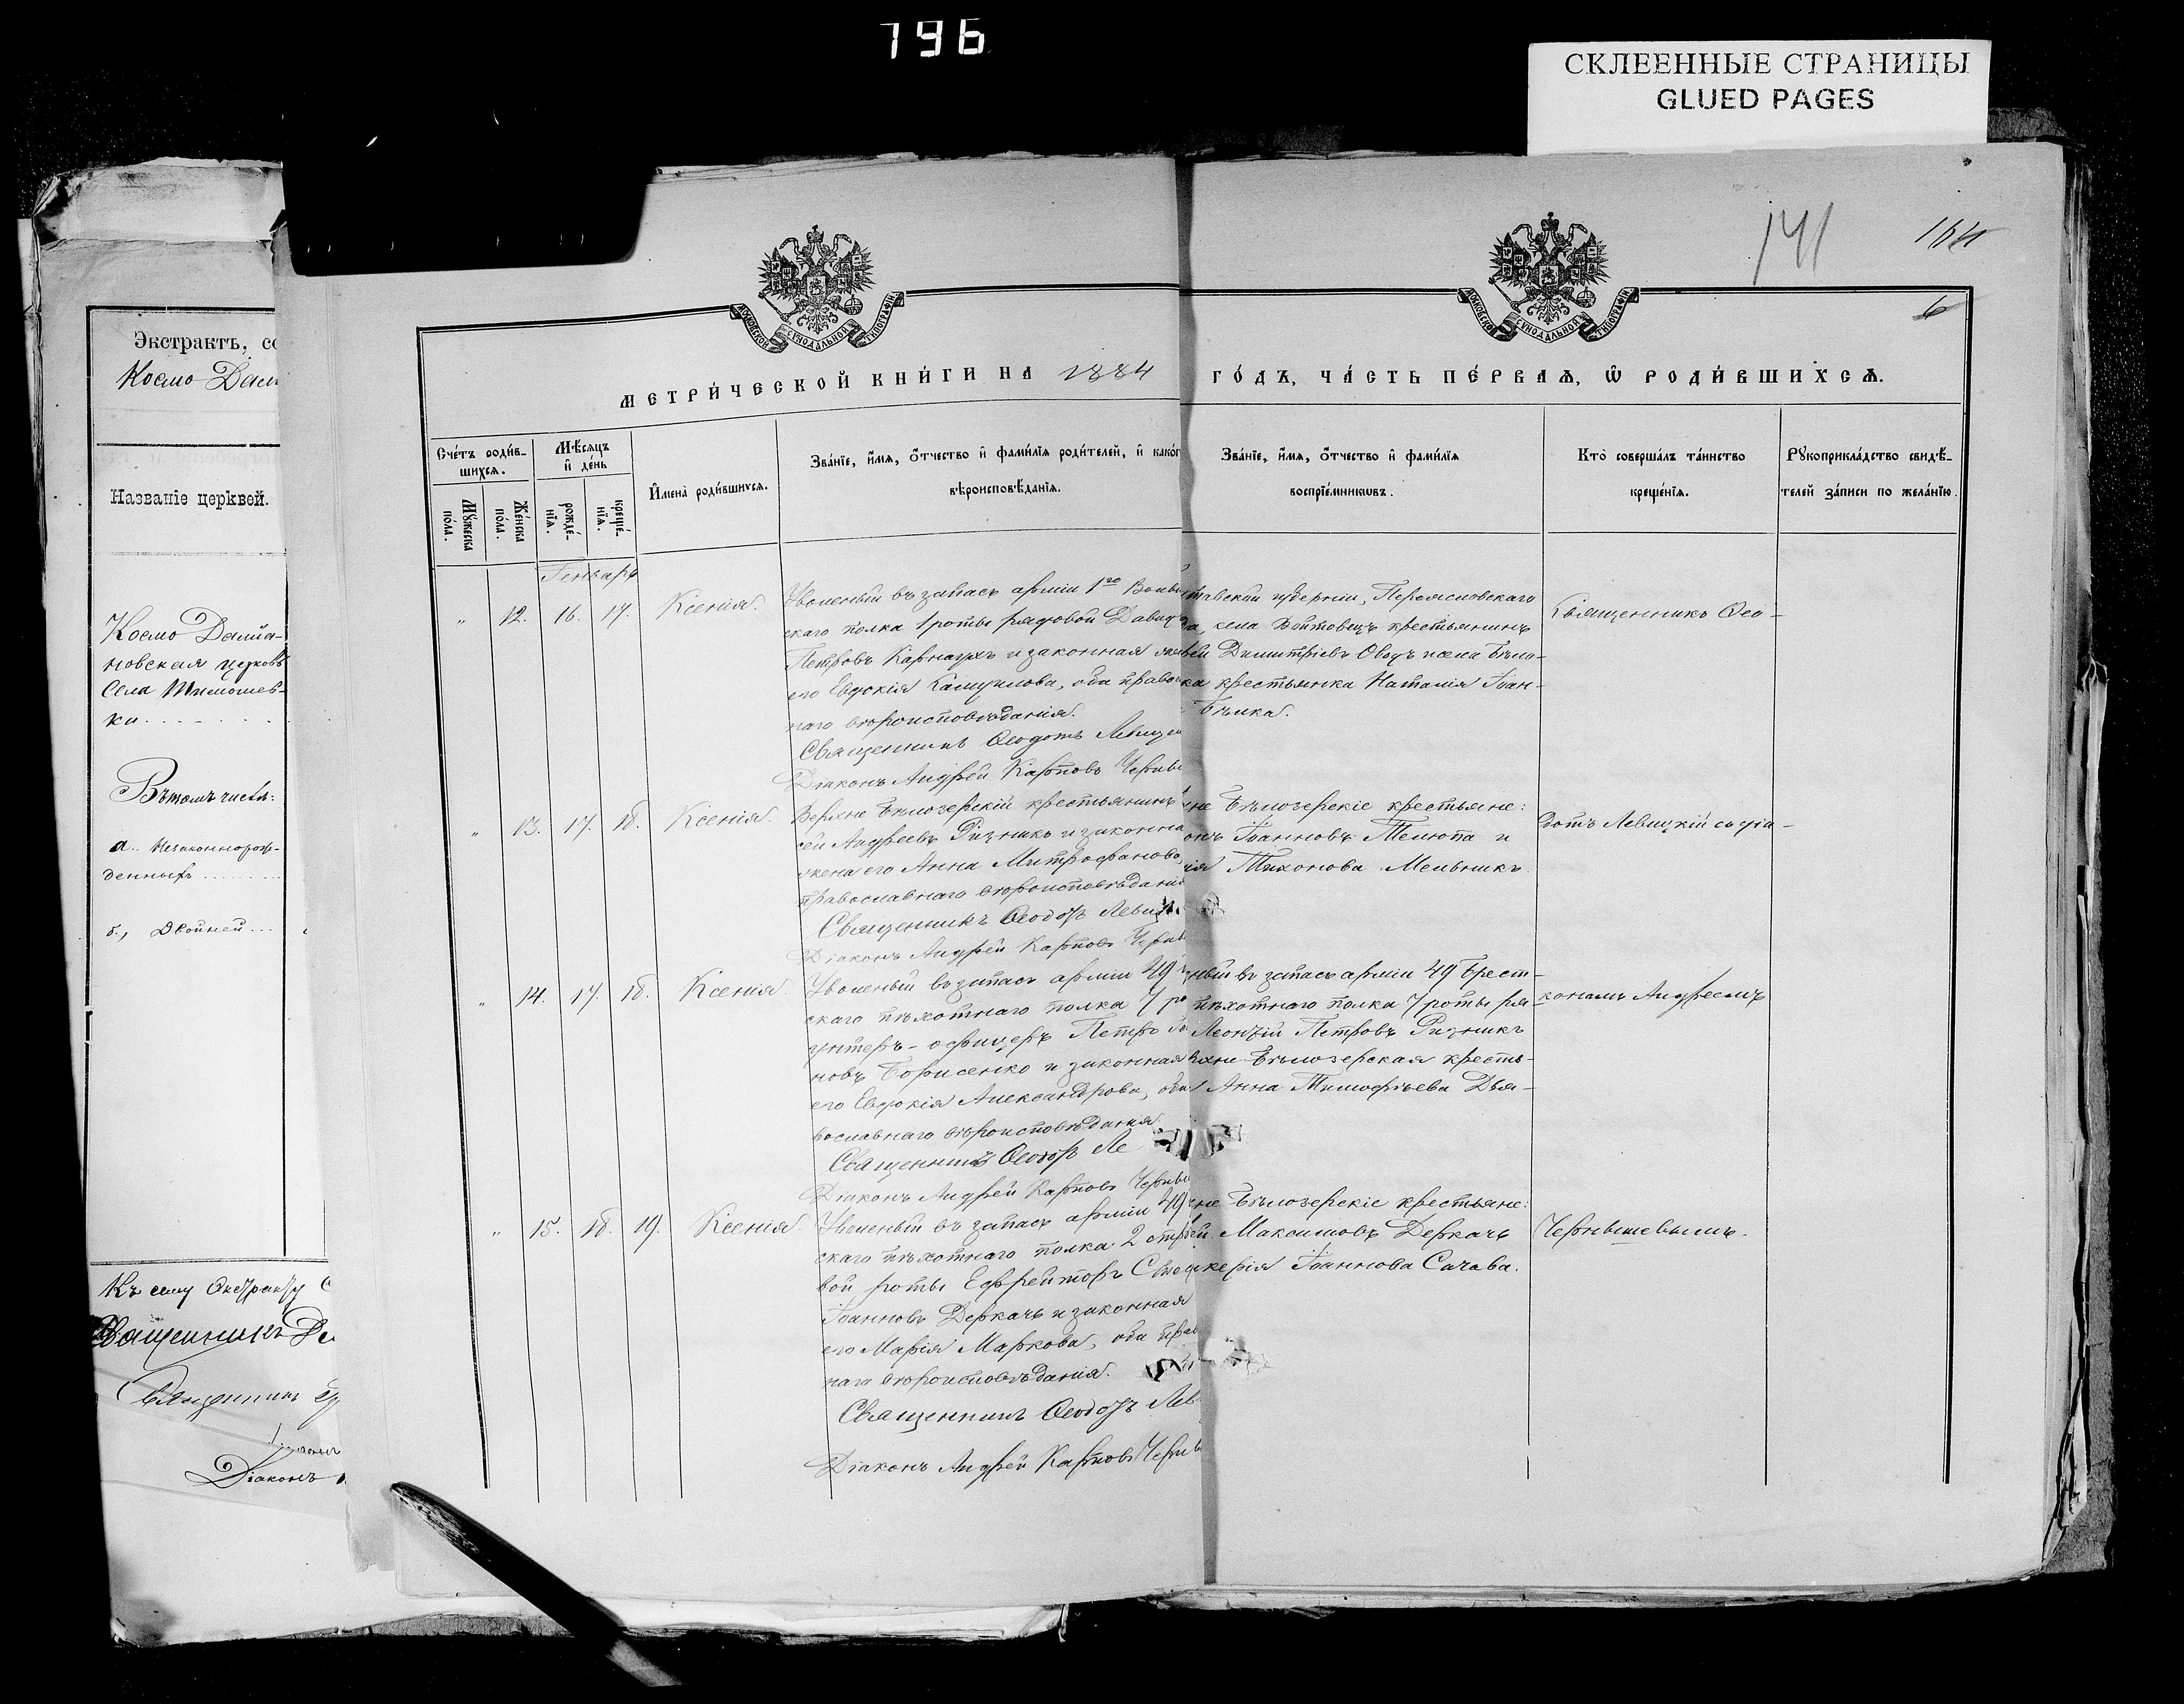 796
СКЛЕЕННЫЕ СТРАНИЦЫ
GLUED PAGES
141
164
6
Экстрактъ, со
Космо Дамі
Названіе церквей.
Космо Даміа-
новская церковь
Села Тимошев-
ки
Въ томъ числѣ:
а. Незаконнорож-
денныхъ
б., Двойней
Къ сему Экстракту С
Священникъ
Священникъ
Діаконъ
МОСКОВСКОЙ СѴНОДАЛЬНОЙ ТИПОГРАФІИ
МОСКОВСКОЙ СѴНОДАЛЬНОЙ ТИПОГРАФІИ
МЕТРИ́ЧЕСКОЙ КНИ́ГИ НА 1884 ГО́ДЪ, ЧА́СТЬ ПЕ́РВАѦ, Ѿ РОДИ́ВШИХСѦ.
Сче́тъ роди́в-
шихсѧ.
Мꙋ́жеска по́ла.
Же́нска по́ла.
Мѣ́сѧцъ и҆ де́нь
рожде́-нїѧ.
креще́-нїѧ.
И҆мена̀ роди́вшихсѧ.
Зва́нїе, и҆́мѧ, ѻ҆́тчество и҆ фами́лїѧ роди́телей, и҆ како́г
вѣроисповѣ́данїѧ.
Зва́нїе, и҆́мѧ, ѻ҆́тчество и҆ фами́лїѧ
воспрїе́мникѡвъ.
Кто̀ соверша́лъ та́инство
креще́нїѧ.
Рꙋкоприкла́дство свидѣ́-
телей за́писи по жела́нїю.
Генварь
" 12. 16. 17. Ксенія.
Уволеный въ запасъ арміи 1го
скаго полка 1 роты рядовой Давидъ
Петровъ Карнаухъ и законная жен
его Евдокія Кампилова, оба право
наго вѣроисповѣданія.
Священникъ Ѳеодотъ Левицк
Діаконъ Андрей Карповъ Черны
тавской губерніи, Переясловскаго
а, села Войтовецъ крестьянинъ
ѣй Димитріевъ Оводъ и села Бѣло-
ка крестьянка Наталія Іоан-
Бѣлка.
Священникъ Ѳео-
" 13. 17. 18. Ксенія.
Верхне Бѣлозерскій крестьянинъ
сѣй Андреевъ Ризникъ и законна
жена его Анна Митрофанова,
православнаго вѣроисповѣданія
Священникъ Ѳеодотъ Левицк
Діаконъ Андрей Карповъ Черны
не Бѣлозерскіе крестьяне:
онъ Іоанновъ Телюпа и
ія Тихонова Мельникъ.
дотъ Левицкій съ діа-
" 14. 17. 18. Ксенія.
Уволеный въ запасъ арміи 49
скаго пѣхотнаго полка 7 ро
унтеръ-офицеръ Петръ
новъ Борисенко и законная
его Евдокія Александрова, оба
вославнаго вѣроисповѣданія
Священникъ Ѳеодотъ Ле
Діаконъ Андрей Карповъ Черны
ный въ запасъ арміи 49 Брест-
пѣхотнаго полка 7 роты ря-
Леонтій Петровъ Ризникъ
ерхне Бѣлозерская кресть-
Анна Тимофѣева Дья-
кономъ Андреемъ
" 15. 18. 19. Ксенія.
Уволеный въ запасъ арміи 49
скаго пѣхотнаго полка 2 стрѣ
вой роты Ефрейторъ
Іоанновъ Деркачъ и законная
его Марія Маркова, оба прав
наго вѣроисповѣданія.
Священникъ Ѳеодотъ Лев
Діаконъ Андрей Карповъ Черны
не Бѣлозерскіе крестьяне:
ей Максимовъ Деркачъ
икерія Іоаннова Сачава.
Чернышевымъ.